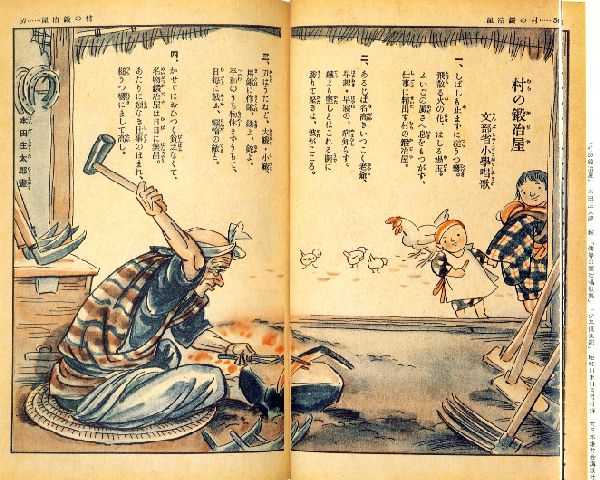 村の鍛冶屋
村の鍛冶屋
村の鍛冶屋
文部省小學唱歌
一、しばしも止まずに槌うつ響。
飛散る火の花、はしる湯玉。
ふいごの風さへ息をもつがず、
仕事に精出す村の鍛冶屋。
二、あるじは名高きいつこく老爺、
早起・早寝の、病知らず。
鐵より堅しとほこれる腕に
勝りて堅きは、彼がこころ。
三、刀はうたねど、大鎌・小鎌、
馬鍬に作鍬、鋤よ、鉈よ。
平和のうち物休まずうちて、
日毎に戰ふ、懶惰の敵と。
四、かせぐにおひつく貧乏なくて、
名物鍛冶屋は日日に繁昌。
あたりに類なき仕事のほまれ、
槌うつ響にまして高し。
本田庄太郎畫